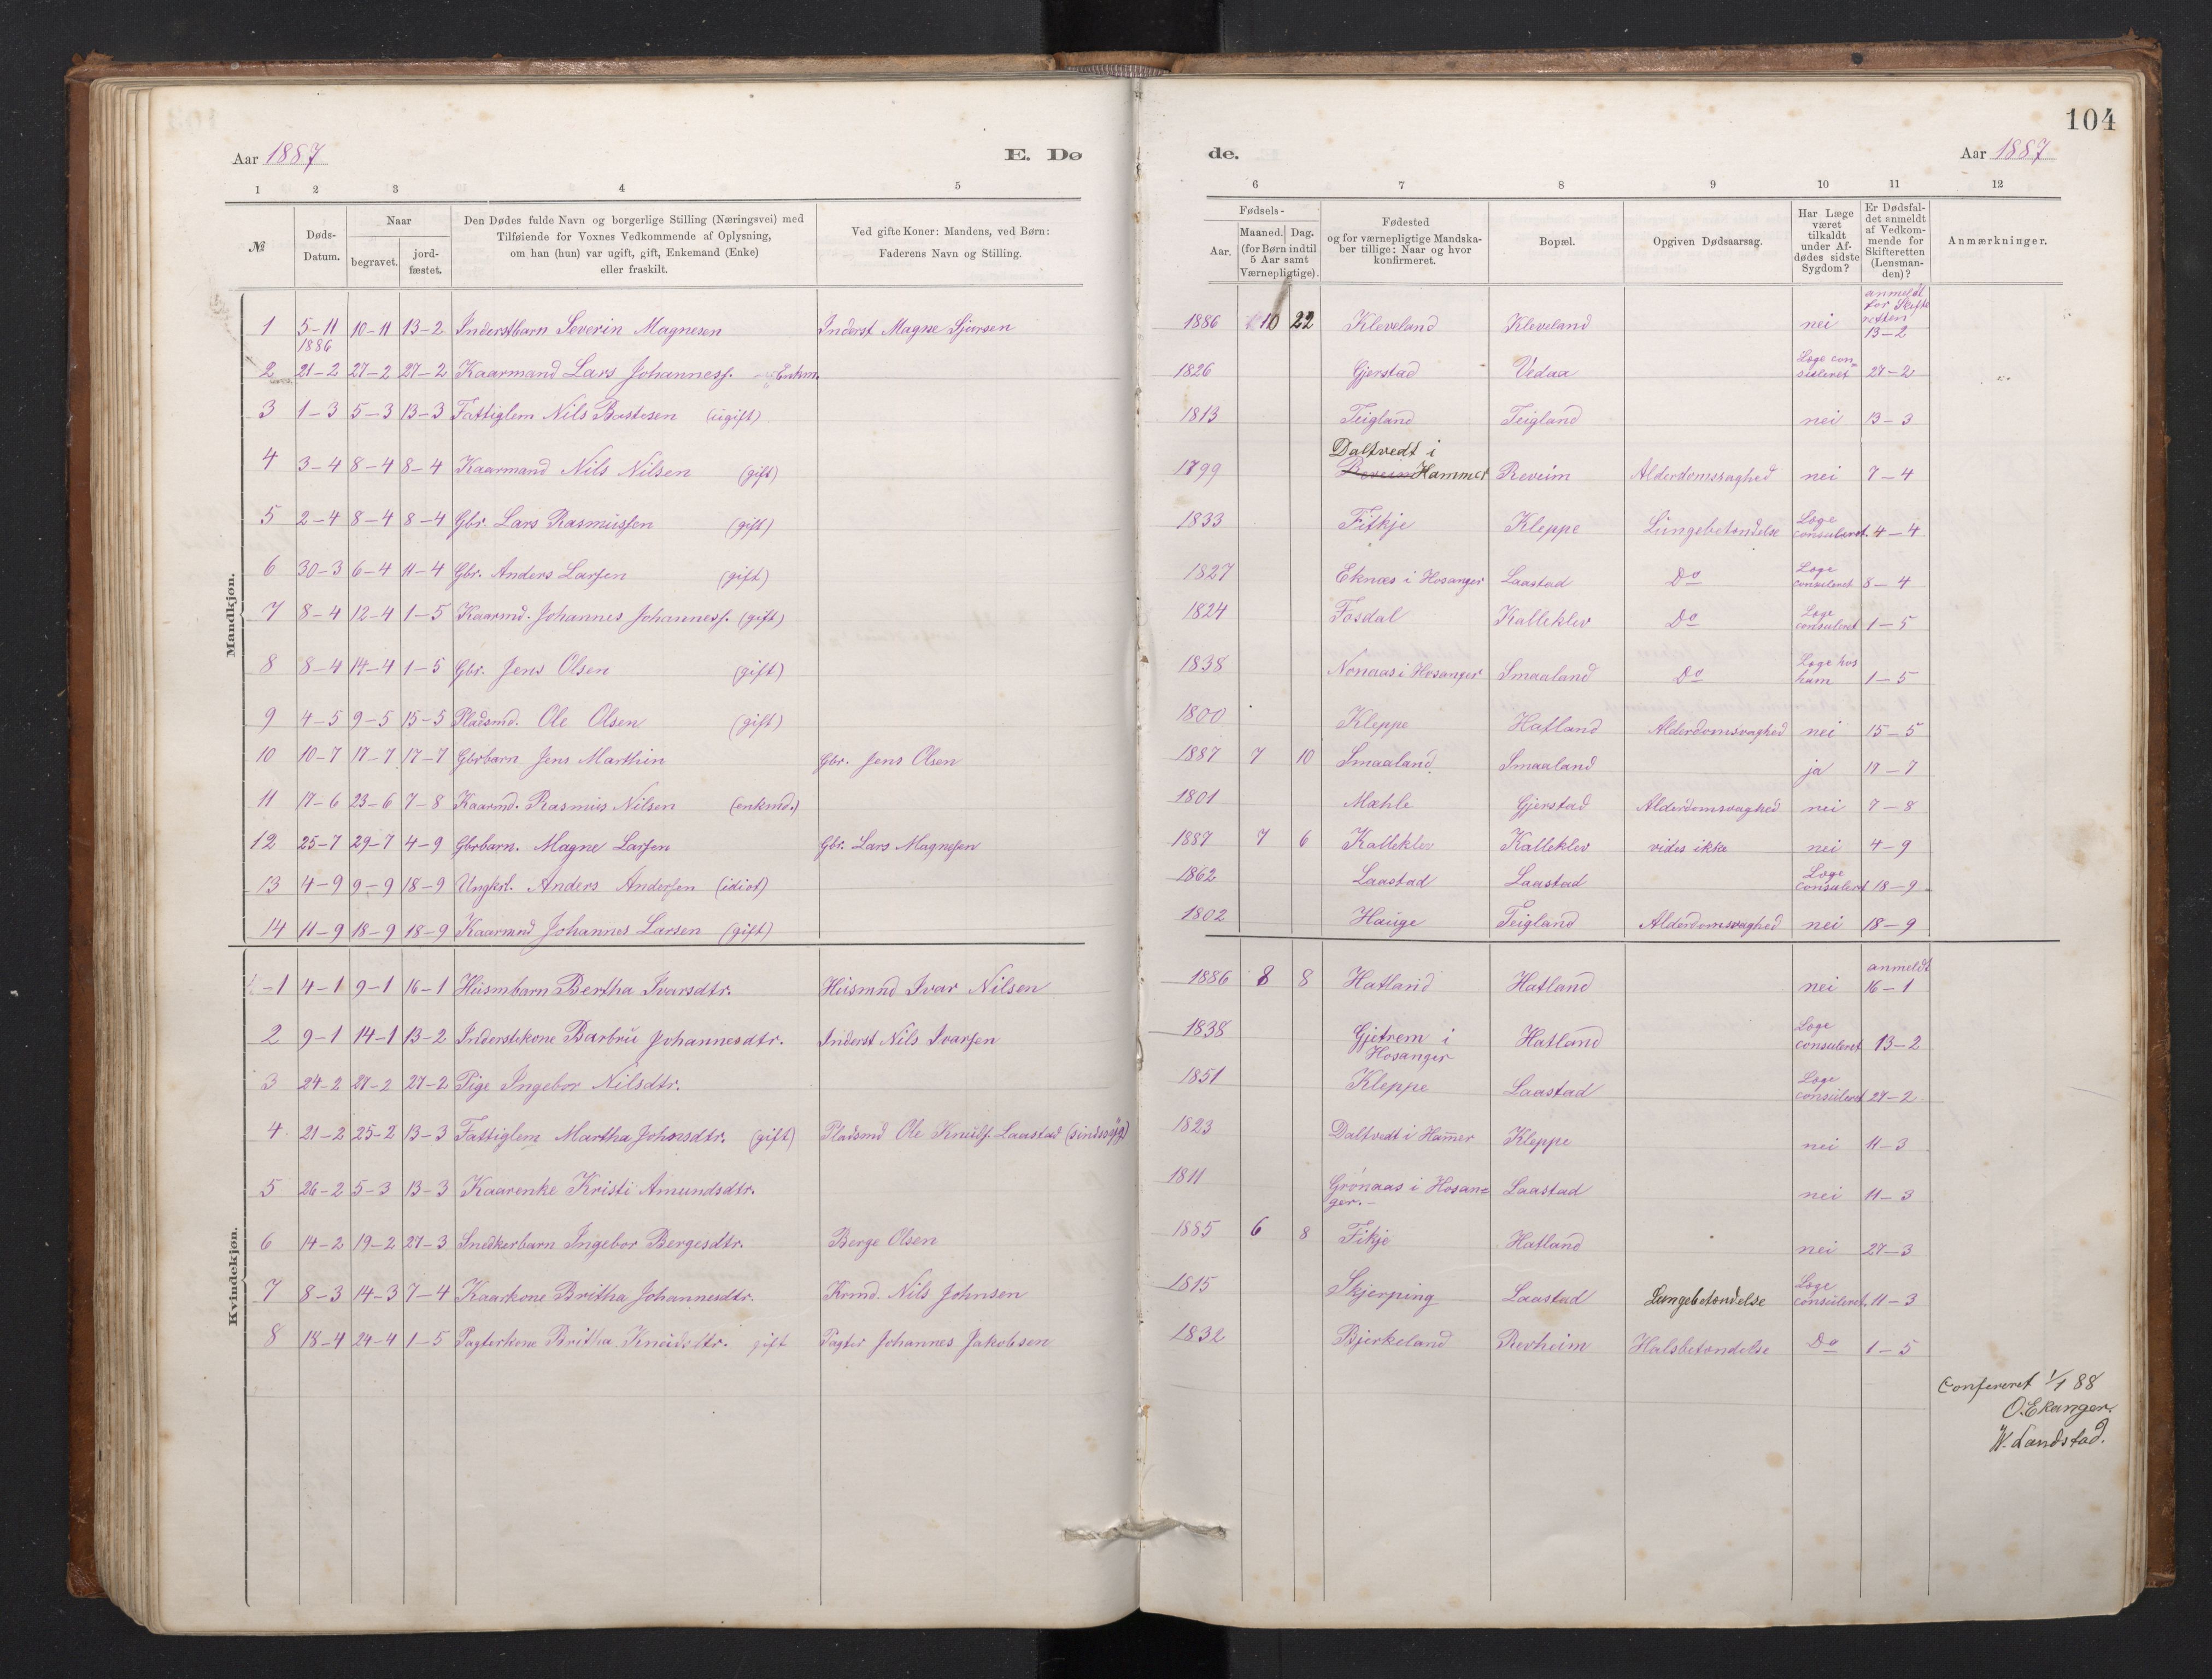 Aar 1887 E. Dø
1 2 3 4 5
№ Døds-Datum. Naar begravet. jord-fæstet. Den Dødes fulde Navn og borgerlige Stilling (Næringsvei) med Tilføiende for Voxnes Vedkommende af Oplysning, om han (hun) var ugift, gift, Enkemand (Enke) eller fraskilt. Ved gifte Koner: Mandens, ved Børn: Faderens Navn og Stilling.
Mandkjøn.
1 5-11 1886 10-11 13-2 Inderstbarn Severin Magnesen Inderst Magne Sjursen
2 21-2 27-2 27-2 Kaarmand Lars Johannesf. Enkm.
3 1-3 5-3 13-3 Fattiglem Nils Bastesen (ugift)
4 3-4 8-4 8-4 Kaarmand Nils Nilsen (gift)
5 2-4 8-4 8-4 Gbr. Lars Rasmussen (gift)
6 30-3 6-4 11-4 Gbr. Anders Larsen (gift)
7 8-4 12-4 1-5 Kaarmd. Johannes Johannesf. (gift)
8 8-4 14-4 1-5 Gbr. Jens Olsen (gift)
9 4-5 9-5 15-5 Pladsmd. Ole Olsen (gift)
10 10-7 17-7 17-7 Gbrbarn Jens Marthin Gbr. Jens Olsen
11 17-6 23-6 7-8 Kaarmd. Rasmus Nilsen (enkmd.)
12 25-7 29-7 4-9 Gbrbarn. Magne Larsen Gbr. Lars Magnesen
13 4-9 9-9 18-9 Ungkrl. Anders Andersen (idiot)
14 11-9 18-9 18-9 Kaarmnd Johannes Larsen (gift)
Kvindekjøn.
1 4-1 9-1 16-1 Husmbarn Bertha Ivarsdtr. Husmnd Ivar Nilsen
2 9-1 14-1 13-2 Inderstekone Barbru Johannesdtr. Inderst Nils Ivarsen
3 24-2 27-2 27-2 Pige Ingebor Nilsdtr.
4 21-2 25-2 13-3 Fattiglem Martha Johnsdtr. (gift) Pladsmd Ole Knutsf. Laastad (sindssyg)
5 26-2 5-3 13-3 Kaarenke Kristi Amundsdtr.
6 14-2 19-2 27-3 Snidkerbarn Ingebor Bergesdtr. Berge Olsen
7 8-3 14-3 7-4 Kaarkone Britha Johannesdtr. Krmd. Nils Johnsen
8 18-4 24-4 1-5 Pagterkone Britha Knudsdtr. gift Pagter Johannes Jakobsen
104
de. Aar 1887
6 7 8 9 10 11 12
Fødsels- Aar. Maaned. Dag. (for Børn indtil 5 Aar samt Værnepligtige). Fødested og for værnepligtige Mandskaber tillige: Naar og hvor konfirmeret. Bopæl. Opgiven Dødsaarsag. Har Læge været tilkaldt under Afdødes sidste Sygdom? Er Dødsfaldet anmeldt af Vedkommende for Skifteretten (Lensmanden)? Anmærkninger.
1886 10 22 Kleveland Kleveland nei anmeldt for Skifteretten 13-2
1826 Gjerstad Vedaa Læge consuleret 27-2
1813 Teigland Teigland nei 13-3
1799 Daltvedt i Reveim Hammer Reveim Alderdomssvaghed nei 7-4
1833 Fitkje Kleppe Lungebetændelse Læge consuleret. 4-4
1827 Eknæs i Hosanger Laastad Do Læge consuleret 8-4
1824 Fosdal Kalleklev Do Læge consuleret 1-5
1838 Nonaas i Hosanger Smaaland Do Læge hos ham 1-5
1800 Kleppe Hatland Alderdomsvaghed nei 15-5
1887 7 10 Smaaland Smaaland ja 17-7
1801 Mæhle Gjerstad Alderdomsvaghed nei 7-8
1887 7 6 Kalleklev Kalleklev vides ikke nei 4-9
1862 Laastad Laastad Læge consuleret 18-9
1802 Hauge Teigland Alderdomsvaghed nei 18-9
1886 8 8 Hatland Hatland nei anmeldt 16-1
1838 Gjetrem i Hosanger Hatland Læge consuleret 13-2
1851 Kleppe Laastad Læge consuleret 27-2
1823 Daltvedt i Ham̄er Kleppe nei 11-3
1811 Grønaas i Hosanger.- Laastad nei 11-3
1885 6 8 Fikje Hatland nei 27-3
1815 Skjerping Laastad Lungebetændelse Læge consuleret. 11-3
1832 Bjerkeland Revheim Halsbetændelse Do 1-5
Confereret 1/1 88
O. Ekanger.
W. Landstad.